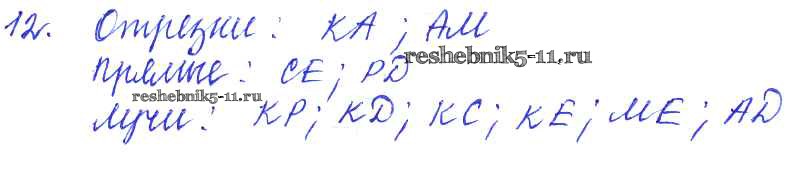 12. Отрезки: KA; AM
reshebnik5-11.ru
прямые: CE; PD
reshebnik5-11.ru
лучи: KP; KD; KC; KE; ME; AD